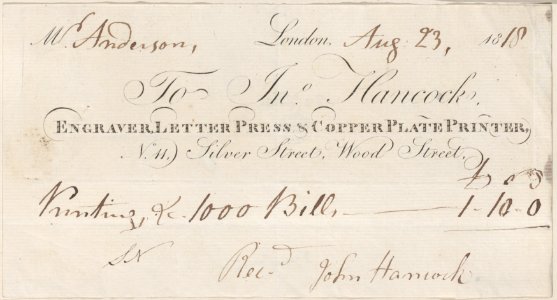 Mr. Anderson, London, Aug 23, 1818
To Jno. Hancock,
ENGRAVER, LETTER PRESS & COPPER PLATE PRINTER,
No. 11, Silver Street, Wood Street,
Printing, &c 1000 Bills 1-10-0
Recd John Hancock